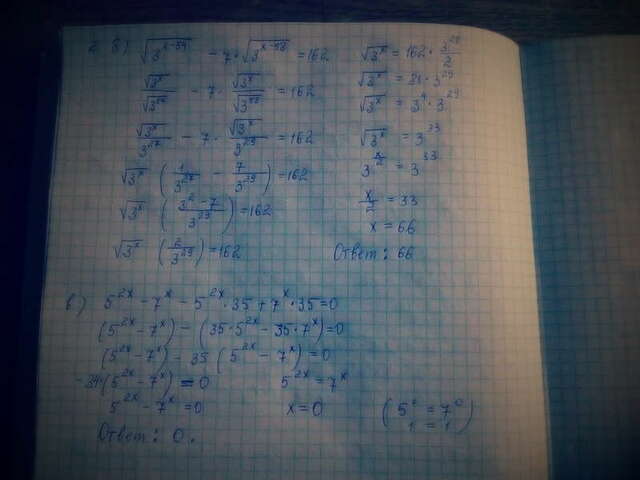 2. б) √3^(x-54) - 7·√3^(x-58) = 162
√3^x/√3^54 - 7·√3^x/√3^58 = 162
√3^x/3^27 - 7·√3^x/3^29 = 162
√3^x (1/3^27 - 7/3^29) = 162
√3^x ((3^2 - 7)/3^29) = 162
√3^x (2/3^29) = 162
√3^x = 162·3^29/2
√3^x = 81·3^29
√3^x = 3^4·3^29
√3^x = 3^33
3^(x/2) = 3^33
x/2 = 33
x = 66
Ответ: 66
в) 5^2x - 7^x - 5^2x·35 + 7^x·35 = 0
(5^2x - 7^x) - (35·5^2x - 35·7^x) = 0
(5^2x - 7^x) - 35 (5^2x - 7^x) = 0
-34·(5^2x - 7^x) = 0 5^2x = 7^x
5^2x - 7^x = 0 x = 0 (5^0 = 7^0
1 = 1)
Ответ: 0.